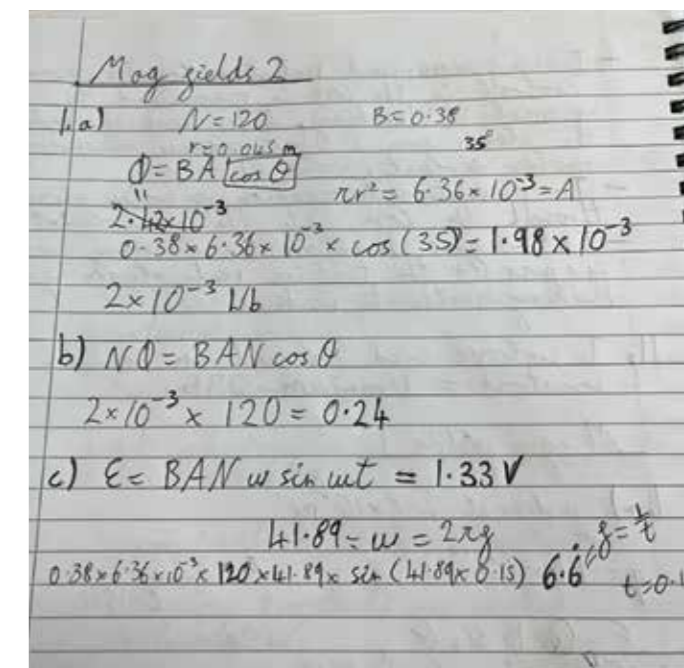 Mag fields 2
1.a) N=120 B=0.38
r=0.045 m 35°
Φ=BA cos θ πr² = 6.36×10⁻³=A
"
2.42×10⁻³
0.38×6.36×10⁻³× cos (35)=1.98×10⁻³
2×10⁻³ Wb
b) NΦ=BAN cos θ
2×10⁻³ × 120 = 0.24
c) ε= BAN ω sin ωt = 1.33 V
41.89= ω = 2πf f=1/t
0.38×6.36×10⁻³×120×41.89× sin (41.89×0.15) 6.6 t=0.1